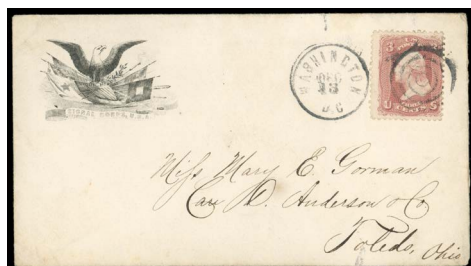 SIGNAL CORPS, U.S.A.
WASHINGTON
DEC
13
D.C
3 3
U S
Miss Mary E. Gorman
Care D. Anderson & Co
Toledo, Ohio